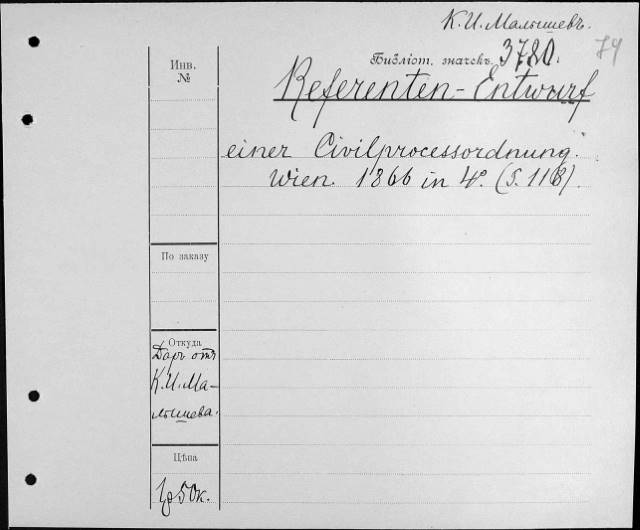 К. И. Малышевъ.
Библіот. значекъ 3780. 79
Инв.
№
Referenten-Entwurf
einer Civilprocessordnung.
Wien. 1866 in 4°. (S. 118).
По заказу
Откуда
Даръ отъ
К. И. Ма-
лышева.
Цѣна
50к.